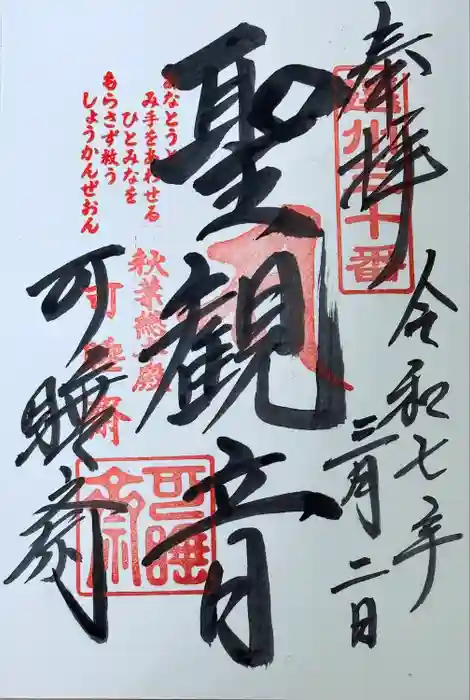 奉拝
令和七年
三月二日
聖観音
み手をあわせる
ひとみなを
もらさず救う
しょうかんぜおん
秋葉總本殿
可睡齋
可睡斎
可睡
斎